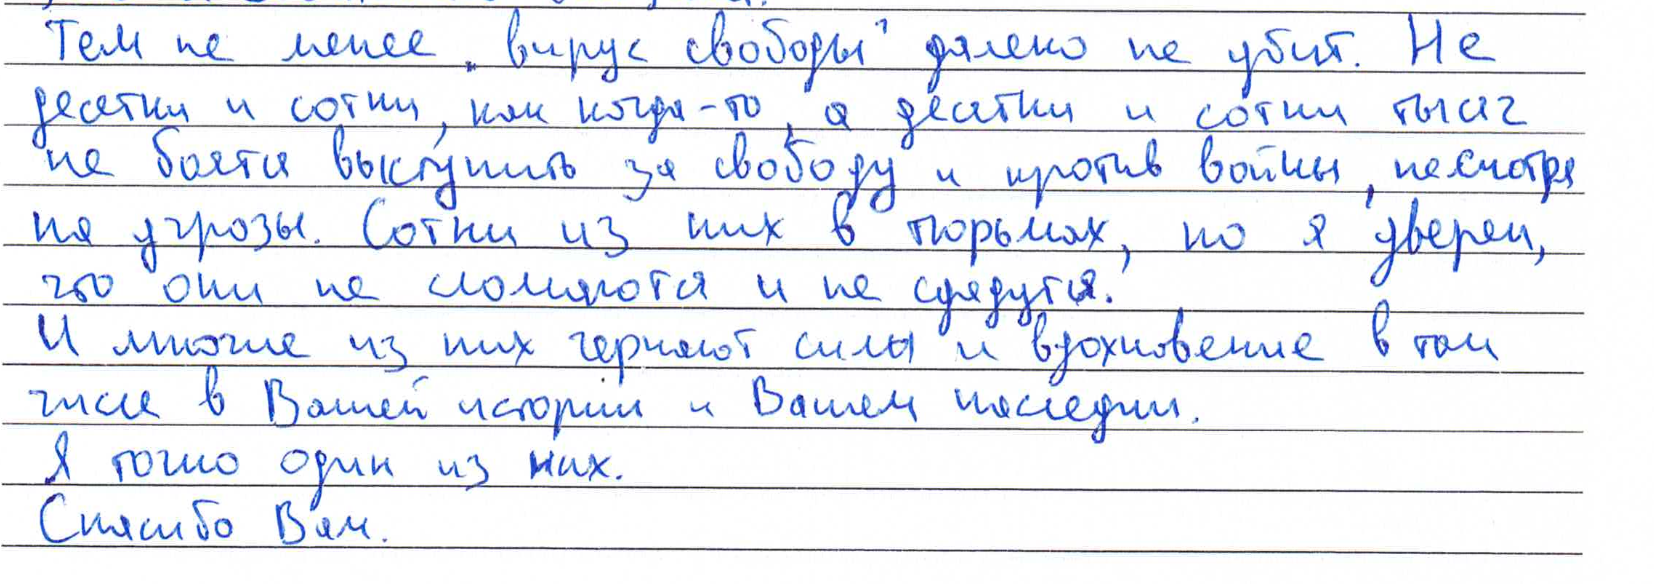 Тем не менее „вирус свободы" далеко не убит. Не
десятки и сотни, как когда-то, а десятки и сотни тысяч
не боятся выступить за свободу и против войны, несмотря
на угрозы. Сотни из них в тюрьмах, но я уверен,
что они не сломаются и не сдадутся.
И многие из них черпают силы и вдохновение в том
числе в Вашей истории и Вашем наследии.
Я точно один из них.
Спасибо Вам.